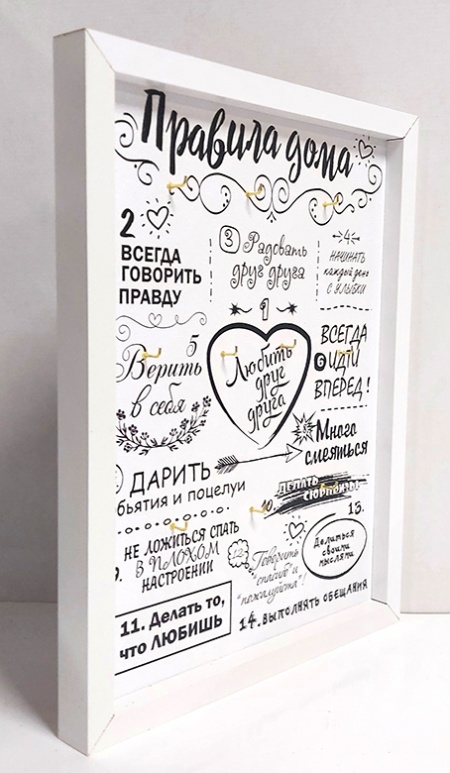 Правила дома
2
ВСЕГДА
ГОВОРИТЬ
ПРАВДУ
3 Радовать
друг друга
4
НАЧИНАТЬ
каждый день
С УЛЫБКИ
1
Любить
друг
друга
5
Верить
в себя
ВСЕГДА
6 ИДТИ
ВПЕРЕД!
Много
смеяться
ДАРИТЬ
бьятия и поцелуи
10. ДЕЛАТЬ
СЮРПРИЗЫ
9. НЕ ЛОЖИТЬСЯ СПАТЬ
В ПЛОХОМ
НАСТРОЕНИИ
12. Говорить
"спасибо" и
"пожалуйста"!
13.
Делиться
своими
мыслями
11. Делать то,
что ЛЮБИШЬ
14. ВЫПОЛНЯТЬ ОБЕЩАНИЯ